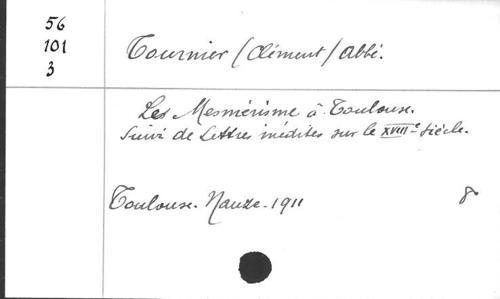 56
101
3
Tournier (Clément) Abbé.
Les Mesmérisme à Toulouse.
Suivi de Lettres inédites sur le XVIIIe siècle.
Toulouse. Nauze. 1911
8